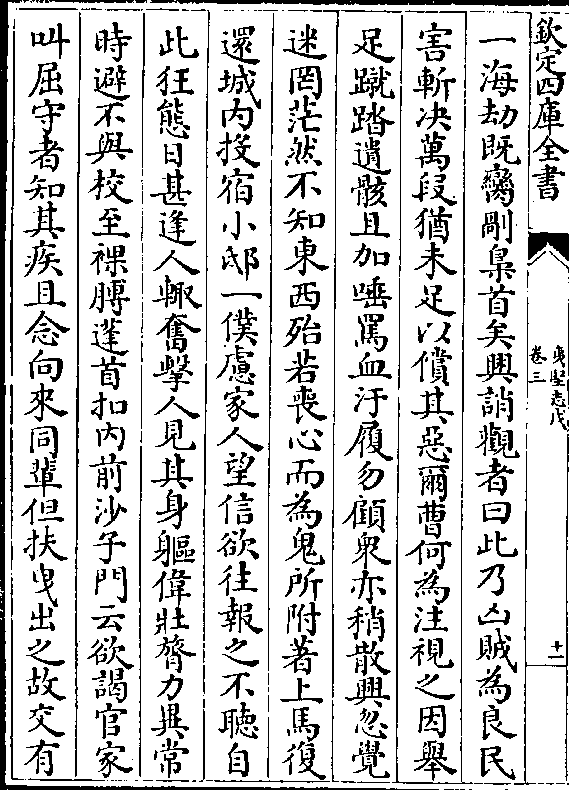 欽定四庫全書
夷堅志戊
卷三
十一
一海劫既臠剮梟首矣興誚觀者曰此乃凶賊為良民
害斬決萬段猶未足以償其惡爾曹何為注視之因舉
足蹴踏遺骸且加唾罵血汙履勿顧衆亦稍散興忽覺
迷罔茫然不知東西殆若喪心而為鬼所附著上馬復
還城内投宿小邸一僕慮家人望信欲往報之不聽自
此狂態日甚逢人輙奮擊人見其身軀偉壯膂力異常
時避不與校至裸膊蓬首扣内前沙子門云欲謁官家
叫屈守者知其疾且念向來同輩但扶曳出之故交有